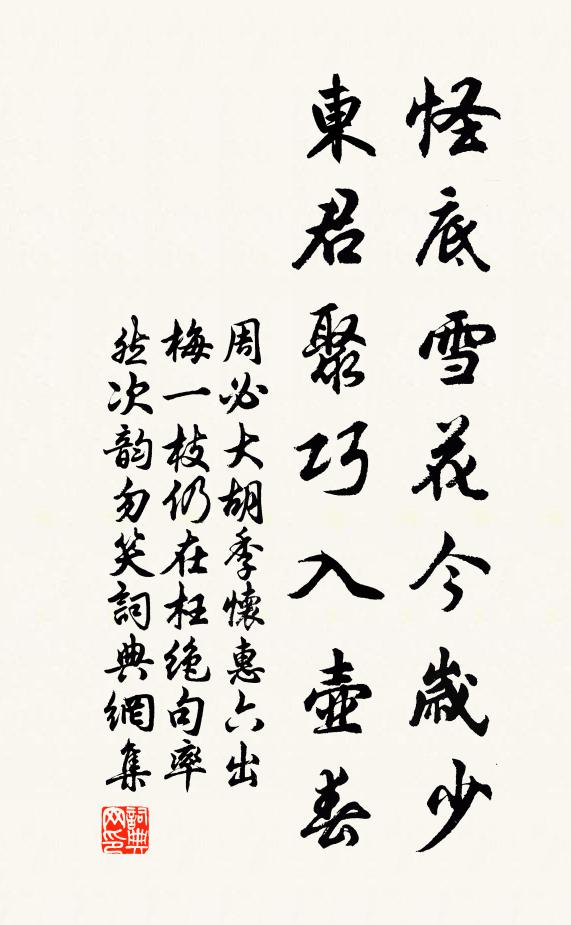 怪底雪花今歲少
東君聚巧入壺春
周必大胡季懷惠六出
梅一枝仍在枉絶句率
然次韵勿笑詞典網集
詞典网印